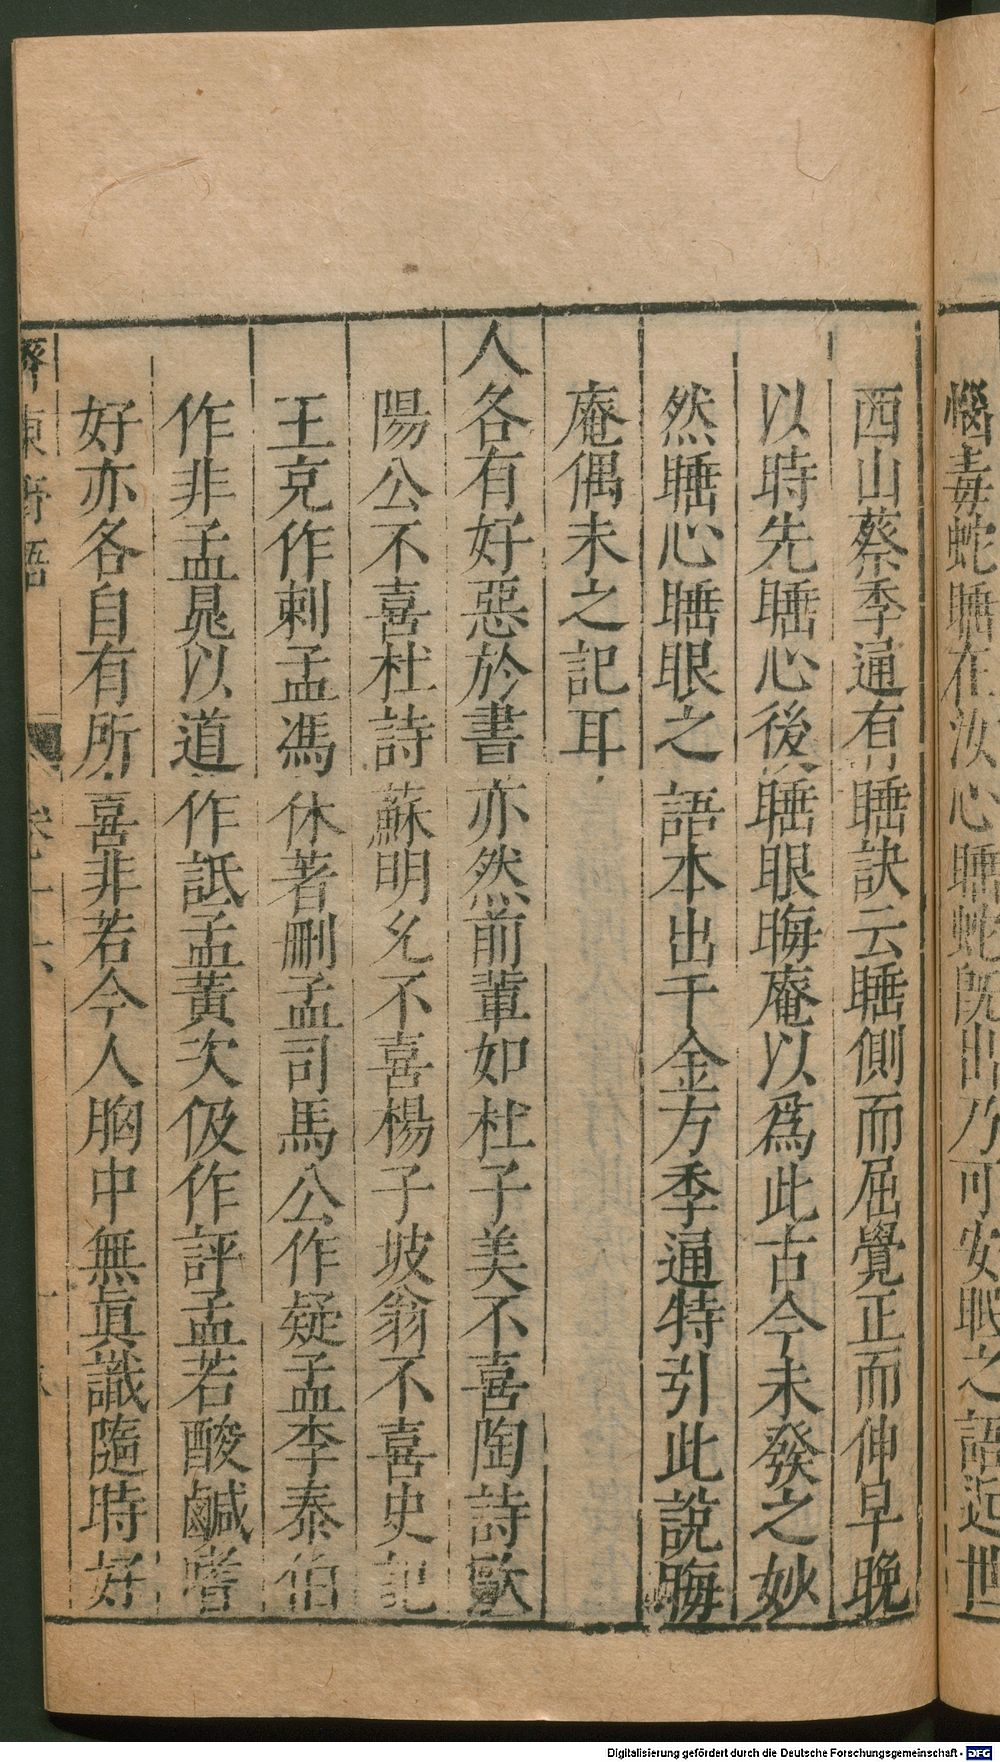 惱毒蛇睡在汝心睡蛇旣出乃可安眠之語近世
西山蔡季通有睡訣云睡側而屈覺正而伸早晚
以時先睡心後睡眼晦庵以爲此古今未發之妙
然睡心睡眼之語本出千金方季通特引此說晦
庵偶未之記耳
人各有好惡於書亦然前輩如杜子美不喜陶詩歐
陽公不喜杜詩蘇明允不喜楊子坡翁不喜史記
王充作刺孟馮休著刪孟司馬公作疑孟李泰伯
作非孟晁以道作詆孟黃次伋作評孟若酸鹹嗜
好亦各自有所喜非若今人胸中無眞識隨時好
齊東野語
Digitalisierung gefördert durch die Deutsche Forschungsgemeinschaft - DFG